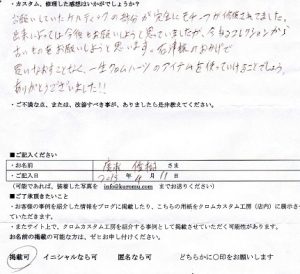 ・カスタム、修理した感想はいかがでしょうか？
お願いしていたカスティングの部分が完全にもキープが修復されてました。
出来によっては今後もお願いしようと思っていましたが、今もコレクションから
古いものをお願いしようと思います。
思いなおすことなく、一生クロムハーツのアイテムを使っていけることでしょう。
ありがとうございました!!
・ご不満な点、または、改善すべき事が、ありましたら是非教えてください。
■ご記入ください
・お名前 さま
・ご記入日 2013年 月 11日
（可能であれば、装着した写真を info@kuromu.com までお送りください）
■ご了承頂きたいこと
・お客様の事例を紹介した情報をブログに掲載したり、こちらの用紙をクロムカスタム工房（店内）に展示させ
ていただきます。
・またサイト上で、クロムカスタム工房を紹介する事例として掲載させていただく可能性があります。
お名前の掲載の可能な方は、ぜひお申し付けください。
掲載可 イニシャルなら可 匿名なら可 どちらかに○印をお願いします